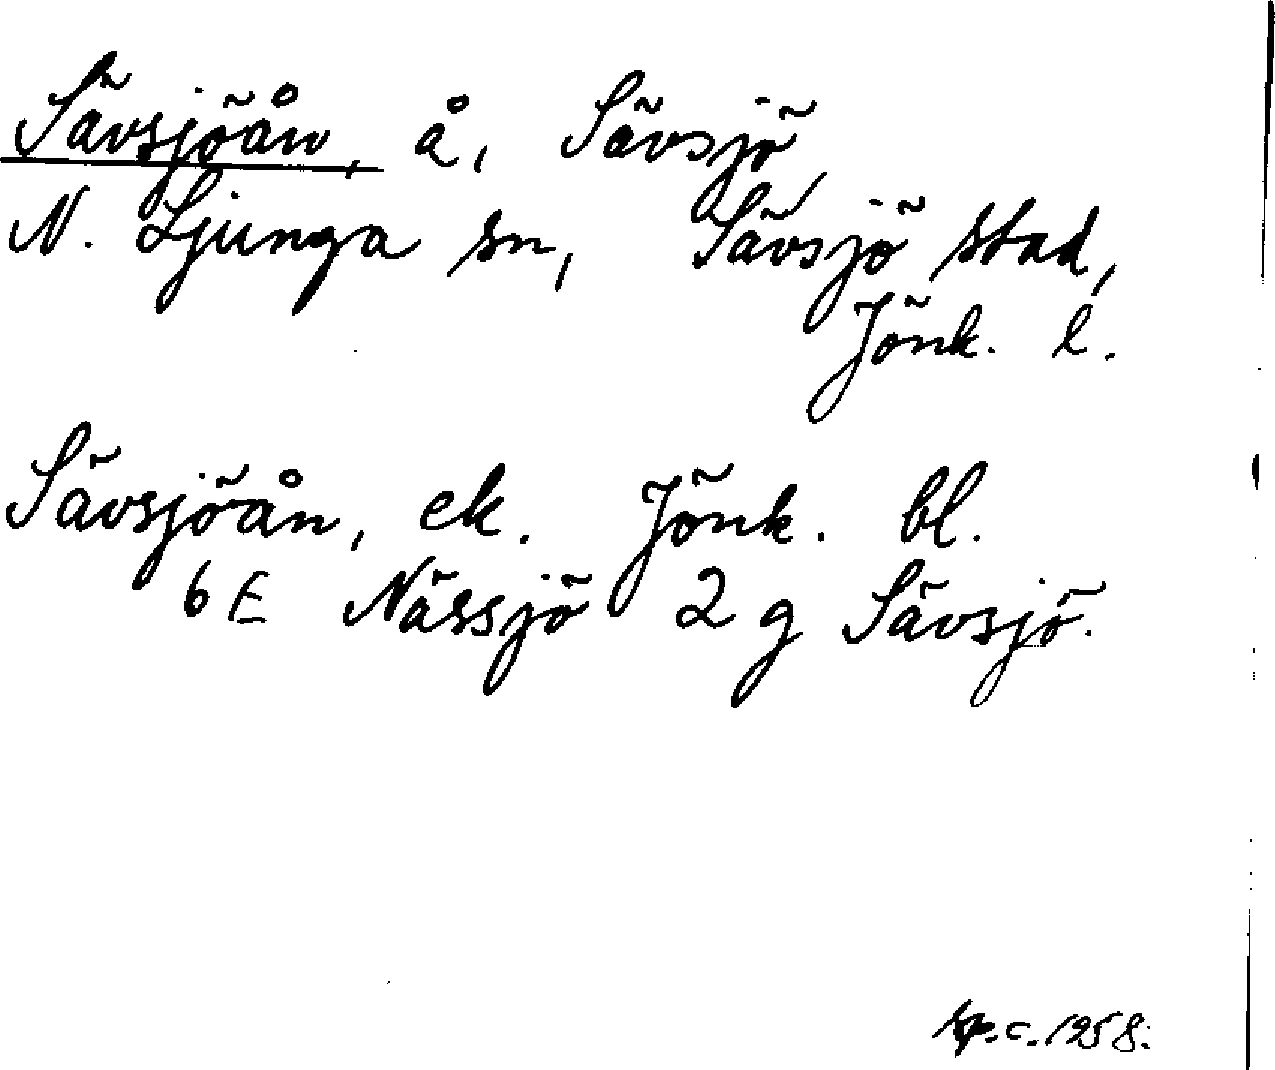 Sävsjöån, å, Sävsjö
N. Ljunga sn, Sävsjö stad,
Jönk. l.
Sävsjöån, ek. Jönk. bl.
6E Nässjö 2 g Sävsjö.
c. 1958.